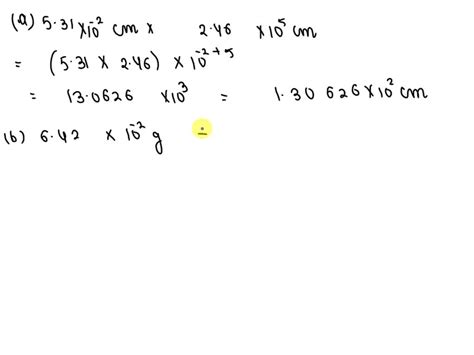 (a) 5.31 × 10⁻² cm × 2.46 × 10⁵ cm
= (5.31 × 2.46) × 10⁻²⁺⁵
= 13.0626 × 10³ = 1.30 626 × 10² cm
(b) 6.42 × 10⁻² g ÷